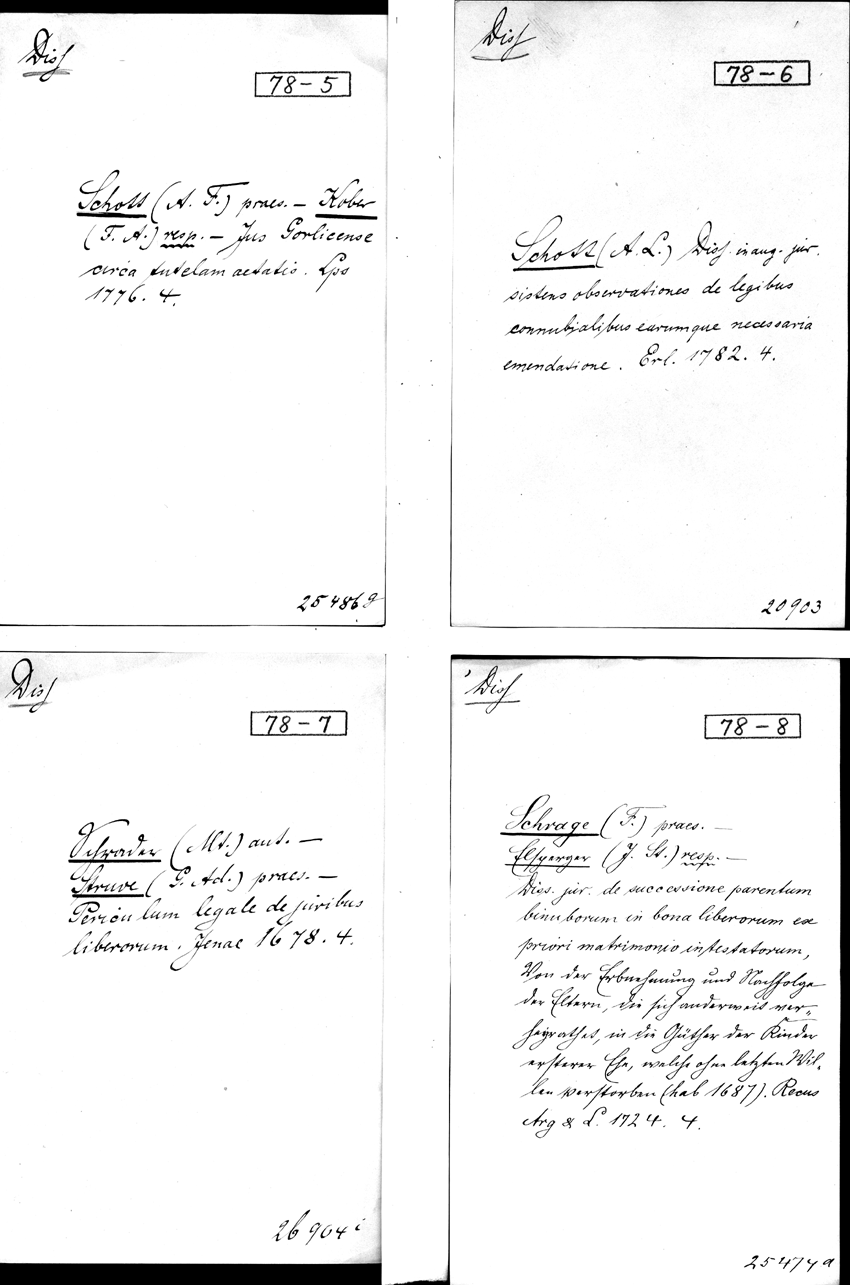 Diss
78-5
Schott (A. F.) praes. – Kober
(F. A.) resp. – Jus Gorlicense
circa tutelam aetatis. Lps
1776. 4.
25486 g
Diss
78-6
Schott (A. L.) Diss. inaug. jur.
sistens observationes de legibus
connubialibus earumque necessaria
emendatione. Erl. 1782. 4.
20903
Diss
78-7
Schrader (Mt.) aut. –
Struve (G. Ad.) praes. –
Periculum legale de juribus
liberorum. Jenae 1678. 4.
26904 i
Diss
78-8
Schrage (F.) praes. –
Elsperger (J. St.) resp. –
Diss. jur. de successione parentum
binuborum in bona liberorum ex
priori matrimonio intestatorum,
Von der Erbnehmung und Nachfolge
der Eltern, die sich anderweit ver-
heyrathet, in die Güther der Kinder
ersterer Ehe, welche ohne letzten Wil-
len verstorben (hab 1687). Recus
Arg & L. 1724. 4.
25474 a